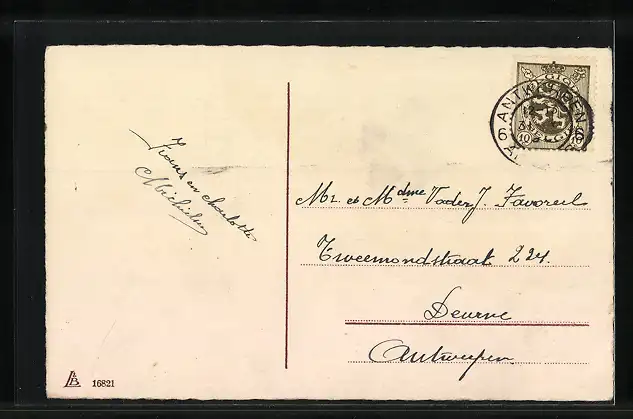 ANTWERPEN
6 6
10
Frans en charlotte
Michielsen
Mr. et Mdme Vader J. Favoreel
Tweemondstraat 224.
Deurne
Antwerpen
16821